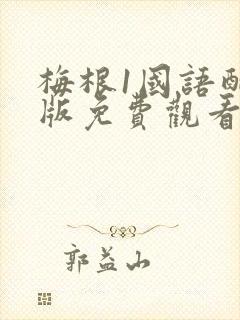 梅根1國語
版免費觀看
郭益山